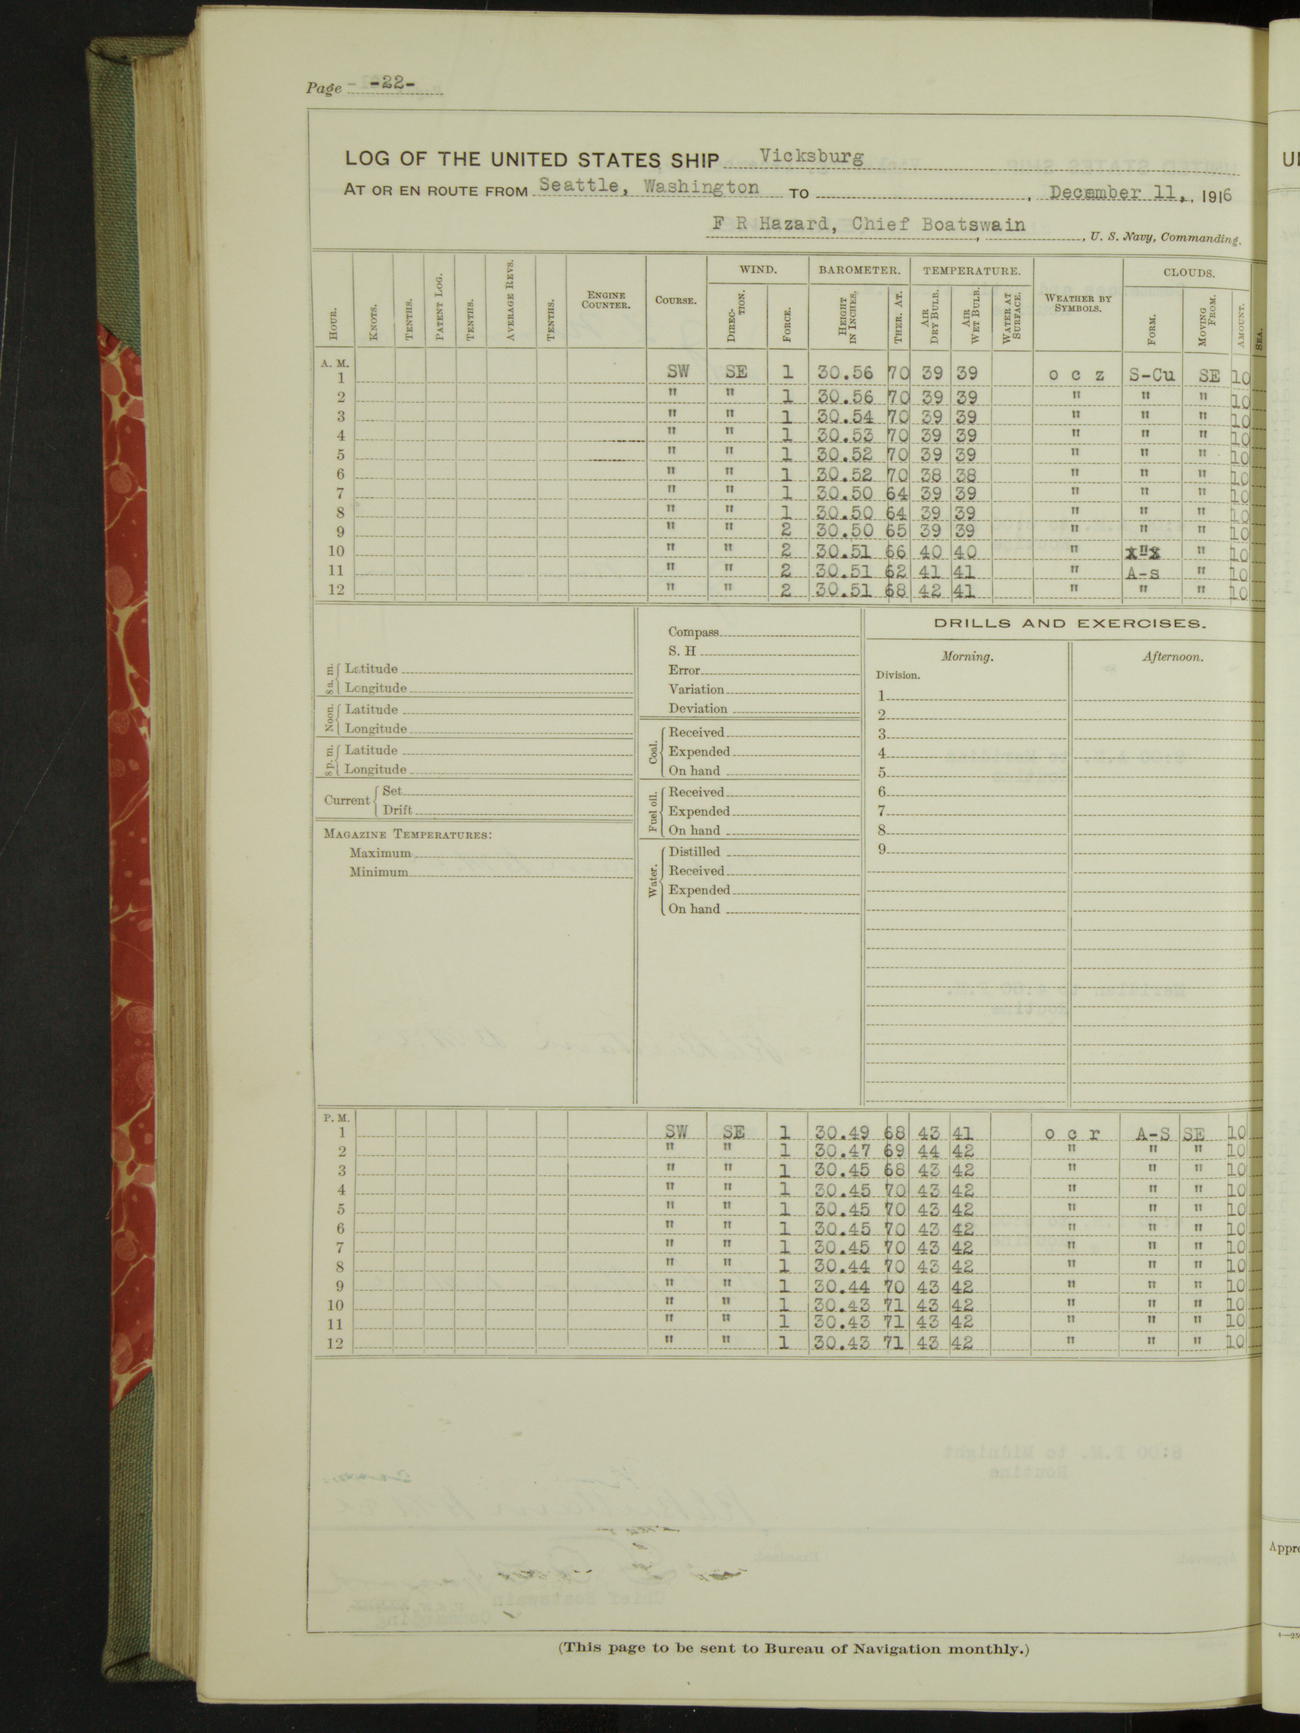 Page -22-
LOG OF THE UNITED STATES SHIP Vicksburg
AT OR EN ROUTE FROM Seattle, Washington TO , December 11, , 1916
F R Hazard, Chief Boatswain , U. S. Navy, Commanding.
WIND. BAROMETER. TEMPERATURE. CLOUDS.
HOUR. KNOTS. TENTHS. PATENT LOG. TENTHS. AVERAGE REVS. TENTHS. ENGINE COUNTER. COURSE. DIREC-TION. FORCE. HEIGHT IN INCHES. THER. AT. AIR DRY BULB. AIR WET BULB. WATER AT SURFACE. WEATHER BY SYMBOLS. FORM. MOVING FROM. AMOUNT. SEA.
A. M.
1 SW SE 1 30.56 70 39 39 o c z S-Cu SE 10
2 " " 1 30.56 70 39 39 " " " 10
3 " " 1 30.54 70 39 39 " " " 10
4 " " 1 30.53 70 39 39 " " " 10
5 " " 1 30.52 70 39 39 " " " 10
6 " " 1 30.52 70 38 38 " " " 10
7 " " 1 30.50 64 39 39 " " " 10
8 " " 1 30.50 64 39 39 " " " 10
9 " " 2 30.50 65 39 39 " " " 10
10 " " 2 30.51 66 40 40 " " " 10
11 " " 2 30.51 62 41 41 " A-s " 10
12 " " 2 30.51 68 42 41 " " " 10
8 a. m. Latitude
Longitude
Noon. Latitude
Longitude
8 p. m. Latitude
Longitude
Current Set
Drift
MAGAZINE TEMPERATURES:
Maximum
Minimum
Compass
S. H
Error
Variation
Deviation
Coal. Received
Expended
On hand
Fuel oil. Received
Expended
On hand
Water. Distilled
Received
Expended
On hand
DRILLS AND EXERCISES.
Morning. Afternoon.
Division.
1
2
3
4
5
6
7
8
9
P. M.
1 SW SE 1 30.49 68 43 41 o c r A-S SE 10
2 " " 1 30.47 69 44 42 " " " 10
3 " " 1 30.45 68 43 42 " " " 10
4 " " 1 30.45 70 43 42 " " " 10
5 " " 1 30.45 70 43 42 " " " 10
6 " " 1 30.45 70 43 42 " " " 10
7 " " 1 30.45 70 43 42 " " " 10
8 " " 1 30.44 70 43 42 " " " 10
9 " " 1 30.44 70 43 42 " " " 10
10 " " 1 30.43 71 43 42 " " " 10
11 " " 1 30.43 71 43 42 " " " 10
12 " " 1 30.43 71 43 42 " " " 10
(This page to be sent to Bureau of Navigation monthly.)